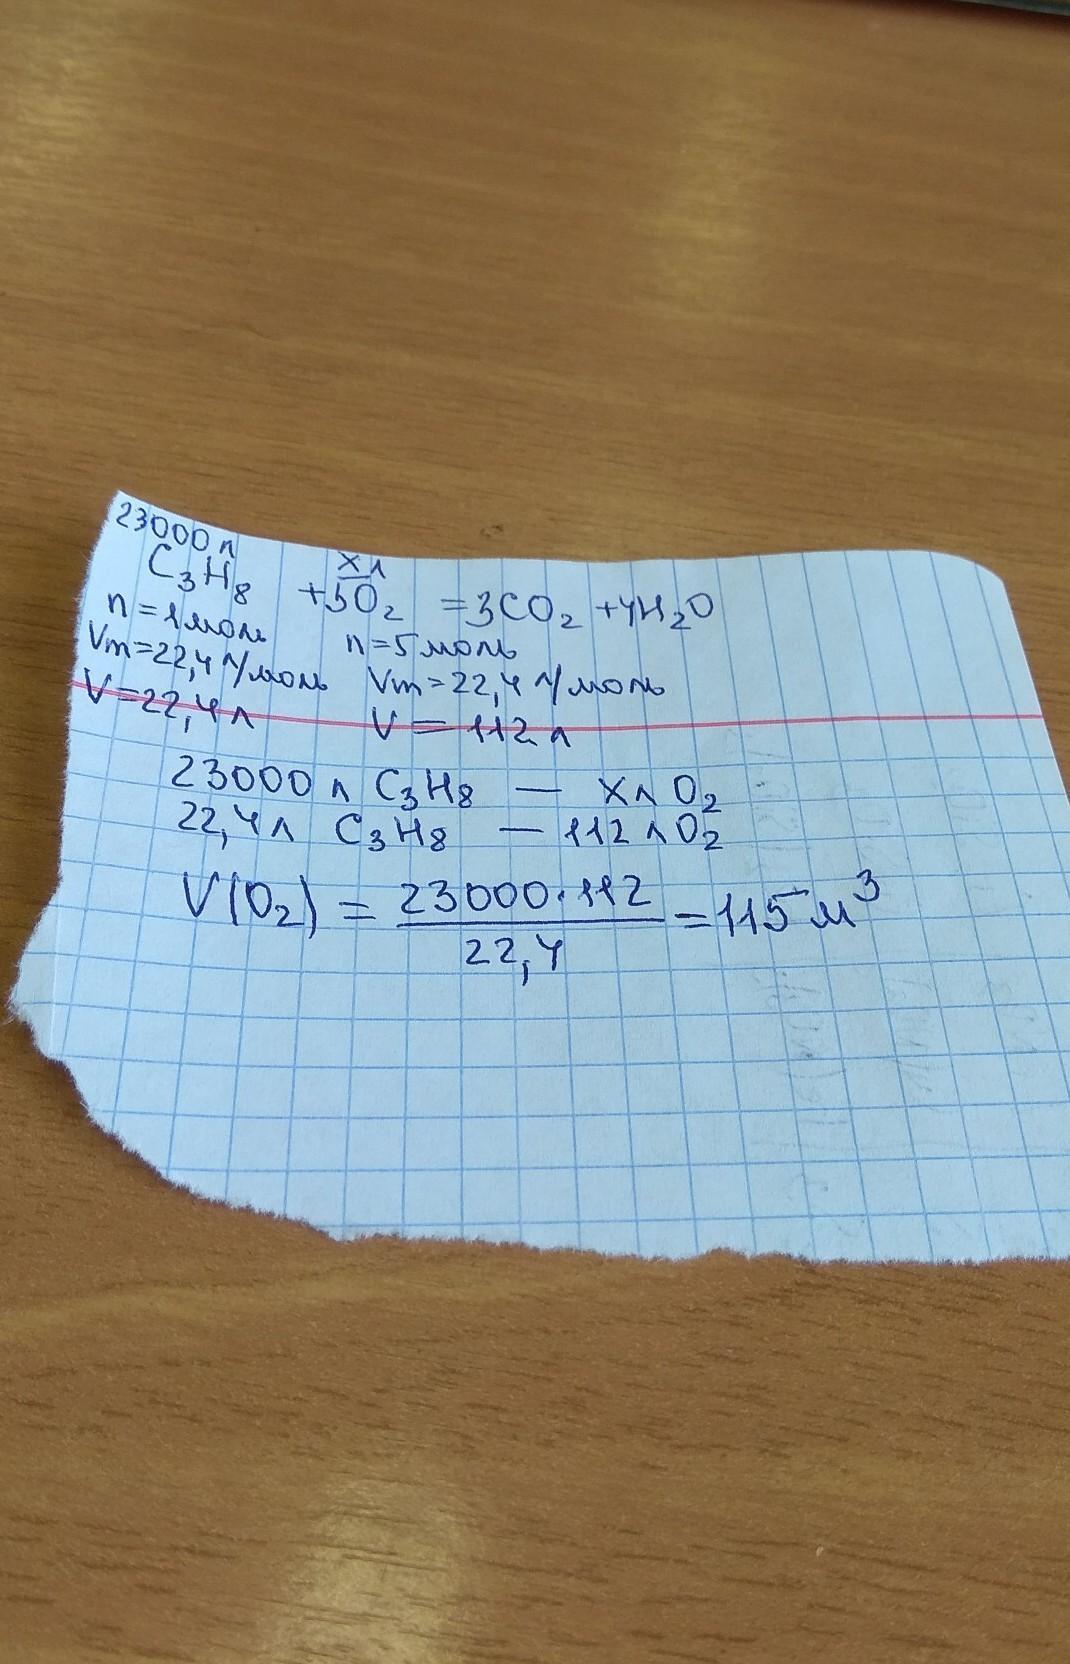 23000 л
хл
C₃H₈ +5O₂ =3CO₂ +4H₂O
n=1моль n=5моль
Vm=22,4 л/моль Vm=22,4 л/моль
V=22,4л V=112л
23000 л C₃H₈ — хл O₂
22,4л C₃H₈ — 112 л O₂
V(O₂) = 23000·112 / 22,4 = 115 м³